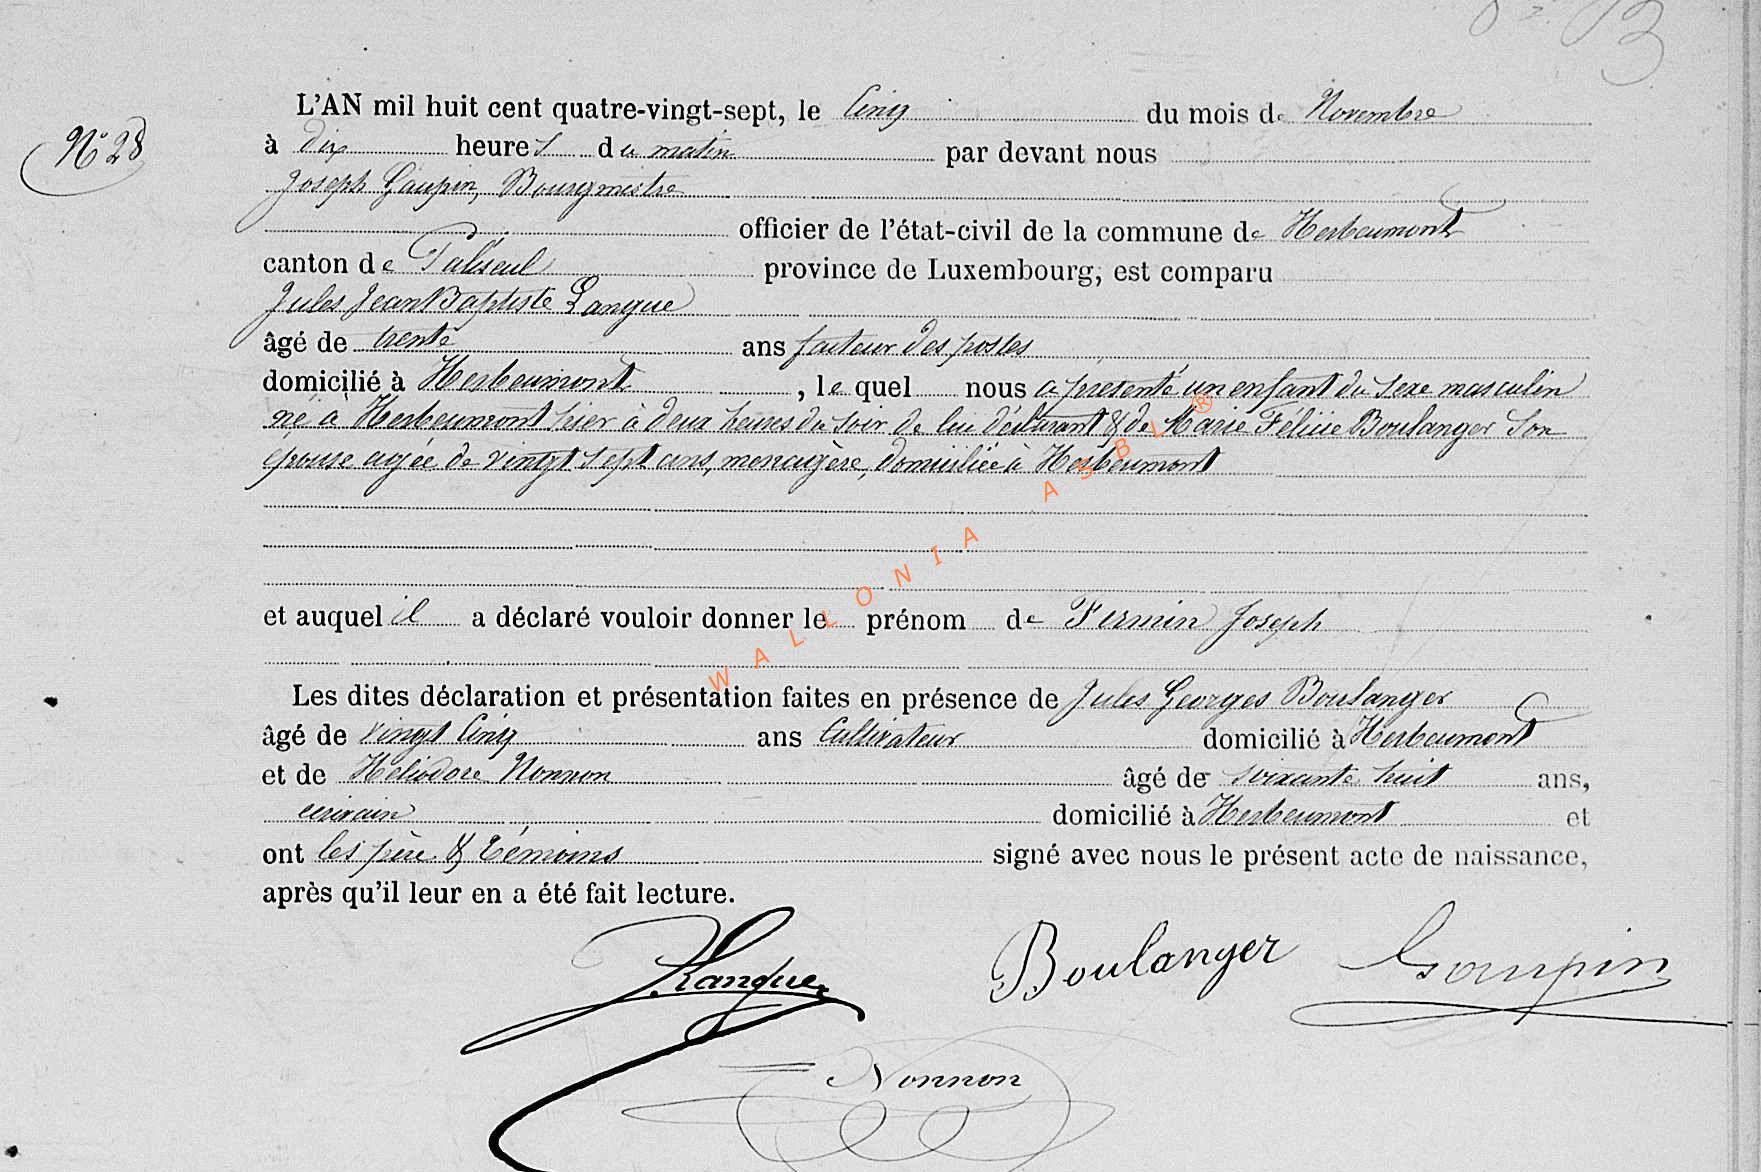 N° 28
L'AN mil huit cent quatre-vingt-sept, le Cinq du mois de Novembre
à dix heures du matin par devant nous
Joseph Goupin, Bourgmestre
officier de l'état-civil de la commune de Herbeumont
canton de Paliseul province de Luxembourg, est comparu
Jules Jean Baptiste Langue
âgé de trente ans facteur des postes
domicilié à Herbeumont, le quel nous a présenté un enfant du sexe masculin
né à Herbeumont hier à deux heures du soir de lui déclarant & de Marie Félicie Boulanger Son
épouse agée de vingt sept ans, menagère, domiciliée à Herbeumont
et auquel il a déclaré vouloir donner le prénom de Firmin Joseph
Les dites déclaration et présentation faites en présence de Jules Georges Boulanger
âgé de vingt Cinq ans Cultivateur domicilié à Herbeumont
et de Héliodore Nonnon âgé de soixante huit ans,
écrivain domicilié à Herbeumont et
ont les père & témoins signé avec nous le présent acte de naissance,
après qu'il leur en a été fait lecture.
JLangue Boulanger Goupin
Nonnon
WALLONIA ASBL ®